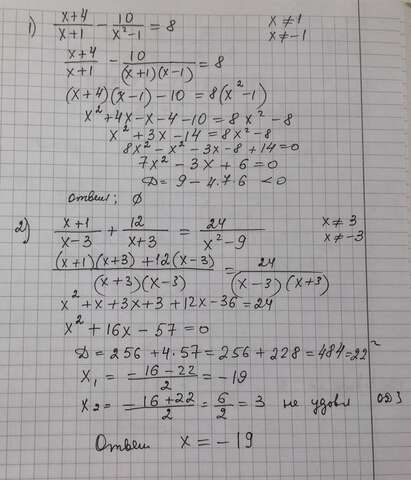 1) x+4/x+1 - 10/x²-1 = 8 x≠1
x≠-1
x+4/x+1 - 10/(x+1)(x-1) = 8
(x+4)(x-1)-10 = 8(x²-1)
x²+4x-x-4-10 = 8x²-8
x²+3x-14 = 8x²-8
8x²-x²-3x-8+14=0
7x²-3x+6=0
D = 9-4.7.6 <0
ответ; ∅
2) x+1/x-3 + 12/x+3 = 24/x²-9 x≠3
x≠-3
(x+1)(x+3)+12(x-3)/(x+3)(x-3) = 24/(x-3)(x+3)
x²+x+3x+3+12x-36=24
x²+16x-57=0
D = 256+4.57=256+228=484=22²
x₁ = -16-22/2 = -19
x₂ = -16+22/2 = 6/2 = 3 не удовл ОДЗ
Ответ x = -19